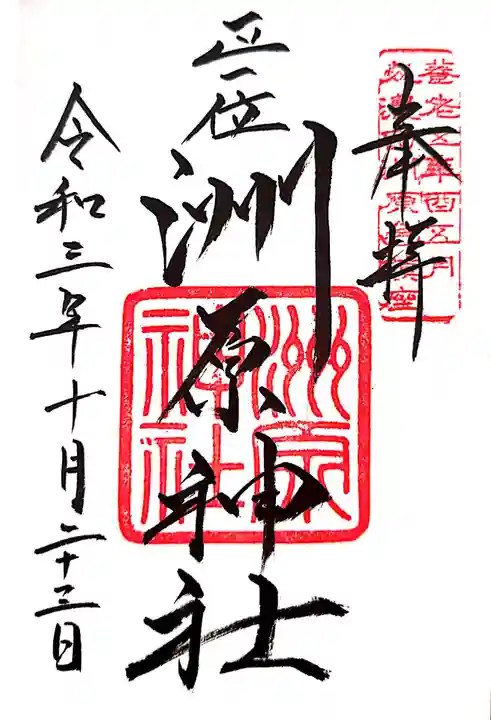 奉拝
養老五年酉五月
正一位
洲原神社
洲原
神社
令和三年十月二十三日